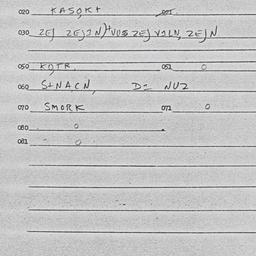 020 KASOK+ 021
030 ZEJ ZEJIN)+VOS ZEJ VILN, ZEJN
050 KOTR 051 0
060 S+NACN, DI NUZ
070 SMORK 072 0
080 0
081 0